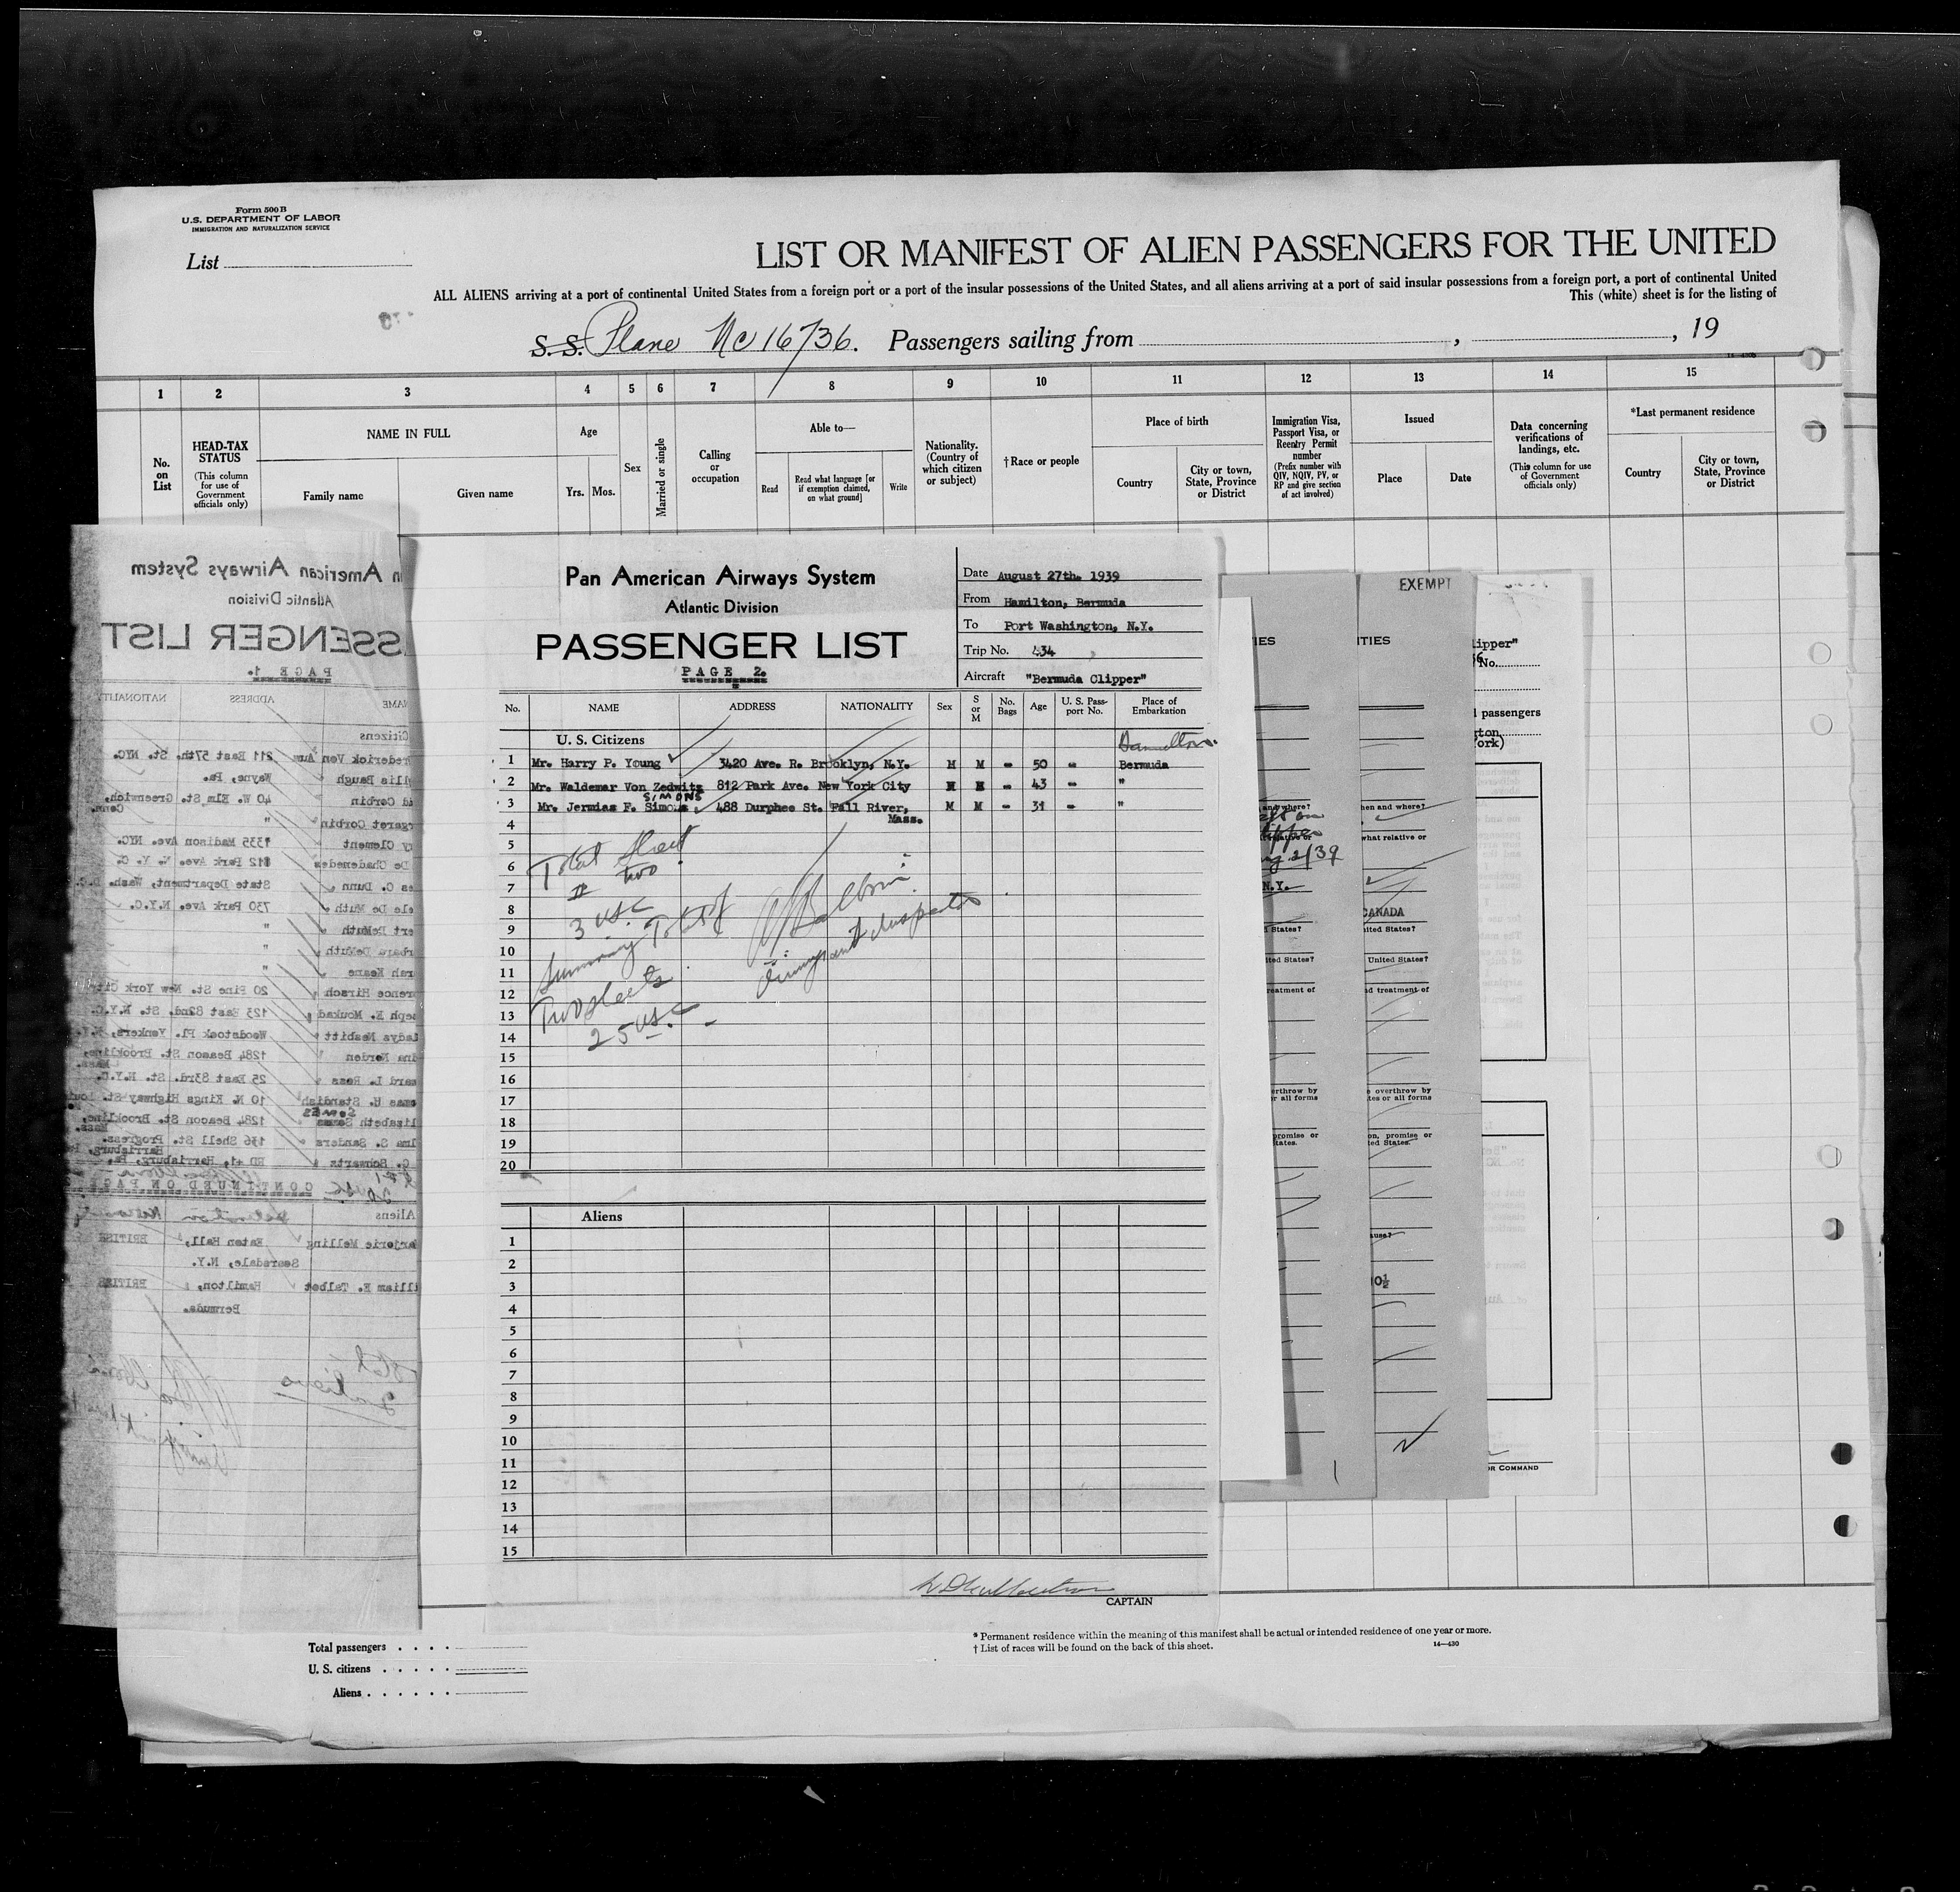 Form 500 B
U.S. DEPARTMENT OF LABOR
IMMIGRATION AND NATURALIZATION SERVICE
List
LIST OR MANIFEST OF ALIEN PASSENGERS FOR THE UNITED
ALL ALIENS arriving at a port of continental United States from a foreign port or a port of the insular possessions of the United States, and all aliens arriving at a port of said insular possessions from a foreign port, a port of continental United
This (white) sheet is for the listing of
S. S. Plane Nc 16736. Passengers sailing from , , 19
1 2 3 4 5 6 7 8 9 10 11 12 13 14 15
No. on List
HEAD-TAX STATUS
(This column for use of Government officials only)
NAME IN FULL
Family name Given name
Age
Yrs. Mos.
Sex
Married or single
Calling or occupation
Able to—
Read
Read what language [or if exemption claimed, on what ground]
Write
Nationality. (Country of which citizen or subject)
†Race or people
Place of birth
Country
City or town, State, Province or District
Immigration Visa, Passport Visa, or Reentry Permit number
(Prefix number with QIV, NQIV, PV, or RP and give section of act involved)
Issued
Place Date
Data concerning verifications of landings, etc.
(This column for use of Government officials only)
*Last permanent residence
Country
City or town, State, Province or District
Pan American Airways System
Atlantic Division
PASSENGER LIST
PAGE 2.
Date August 27th. 1939
From Hamilton, Bermuda
To Port Washington, N.Y.
Trip No. 434
Aircraft "Bermuda Clipper"
No. NAME ADDRESS NATIONALITY Sex S or M No. Bags Age U. S. Passport No. Place of Embarkation
U. S. Citizens Hamilton
1 Mr. Harry P. Young 3420 Ave. R. Brooklyn, N.Y. M M - 50 - Bermuda
2 Mr. Waldemar Von Zedwitz 812 Park Ave. New York City M M - 43 - "
SIMONS
3 Mr. Jermias F. Simons 488 Durphee St. Fall River, M M - 31 - "
Mass.
4
5
6
7
8
9
10
11
12
13
14
15
16
17
18
19
20
Total sheet
# two
3 USC
Summary Total of
Two sheets
25 USC
Immigrant Inspector
Aliens
1
2
3
4
5
6
7
8
9
10
11
12
13
14
15
CAPTAIN
Am American Airways System
Atlantic Division
SSENGER LIST
PAGE 1.
NAME ADDRESS NATIONALITY
Citizens
rederick Von Aum 211 East 57th. St. NYC.
llis Baugh Wayne, Pa.
id Corbin 40 W. Elm St. Greenwich, Conn.
rgaret Corbin "
ry Clement 1335 Madison Ave. NYC.
De Chadenedes 812 Park Ave. N. Y. C.
es C. Dunn State Department, Wash. D.C.
ele De Muth 730 Park Ave. N.Y.C.
ert DeMuth "
rbara DeMuth "
rah Keane "
rence Hirsch 20 Pine St. New York City
seph E. Moukad 123 East 82nd. St. N.Y.C.
ladys Nesbitt Woodstock Pl. Yonkers, N.Y.
ina Norden 1284 Beacon St. Brookline, Mass.
ward L. Ross 25 East 83rd. St. N.Y.C.
omas U. Standish 10 N. Kings Highway St. Louis
SOMES
lizabeth Somes 1284 Beacon St. Brookline, Mass.
lma S. Sanders 136 Shell St. Progress, Harrisburg, Pa.
C. Schwartz RD #1, Harrisburg, Pa.
20 USC
CONTINUED ON PAGE
Aliens
arjorie Melling Eaton Hall, BRITISH
Scarsdale, N.Y.
illiam E. Talbot Hamilton, BRITISH
Bermuda.
2 aliens
IES
and where?
N.Y.
d States?
ited States?
reatment of
erthrow by
r all forms
promise or
tates.
EXEMPT
ITIES
hen and where?
what relative or
CANADA
nited States?
United States?
d treatment of
e overthrow by
tes or all forms
on, promise or
ted States.
ause?
lipper"
No.
l passengers
gton,
ork)
OR COMMAND
Total passengers
U. S. citizens
Aliens
* Permanent residence within the meaning of this manifest shall be actual or intended residence of one year or more.
† List of races will be found on the back of this sheet.
14—430